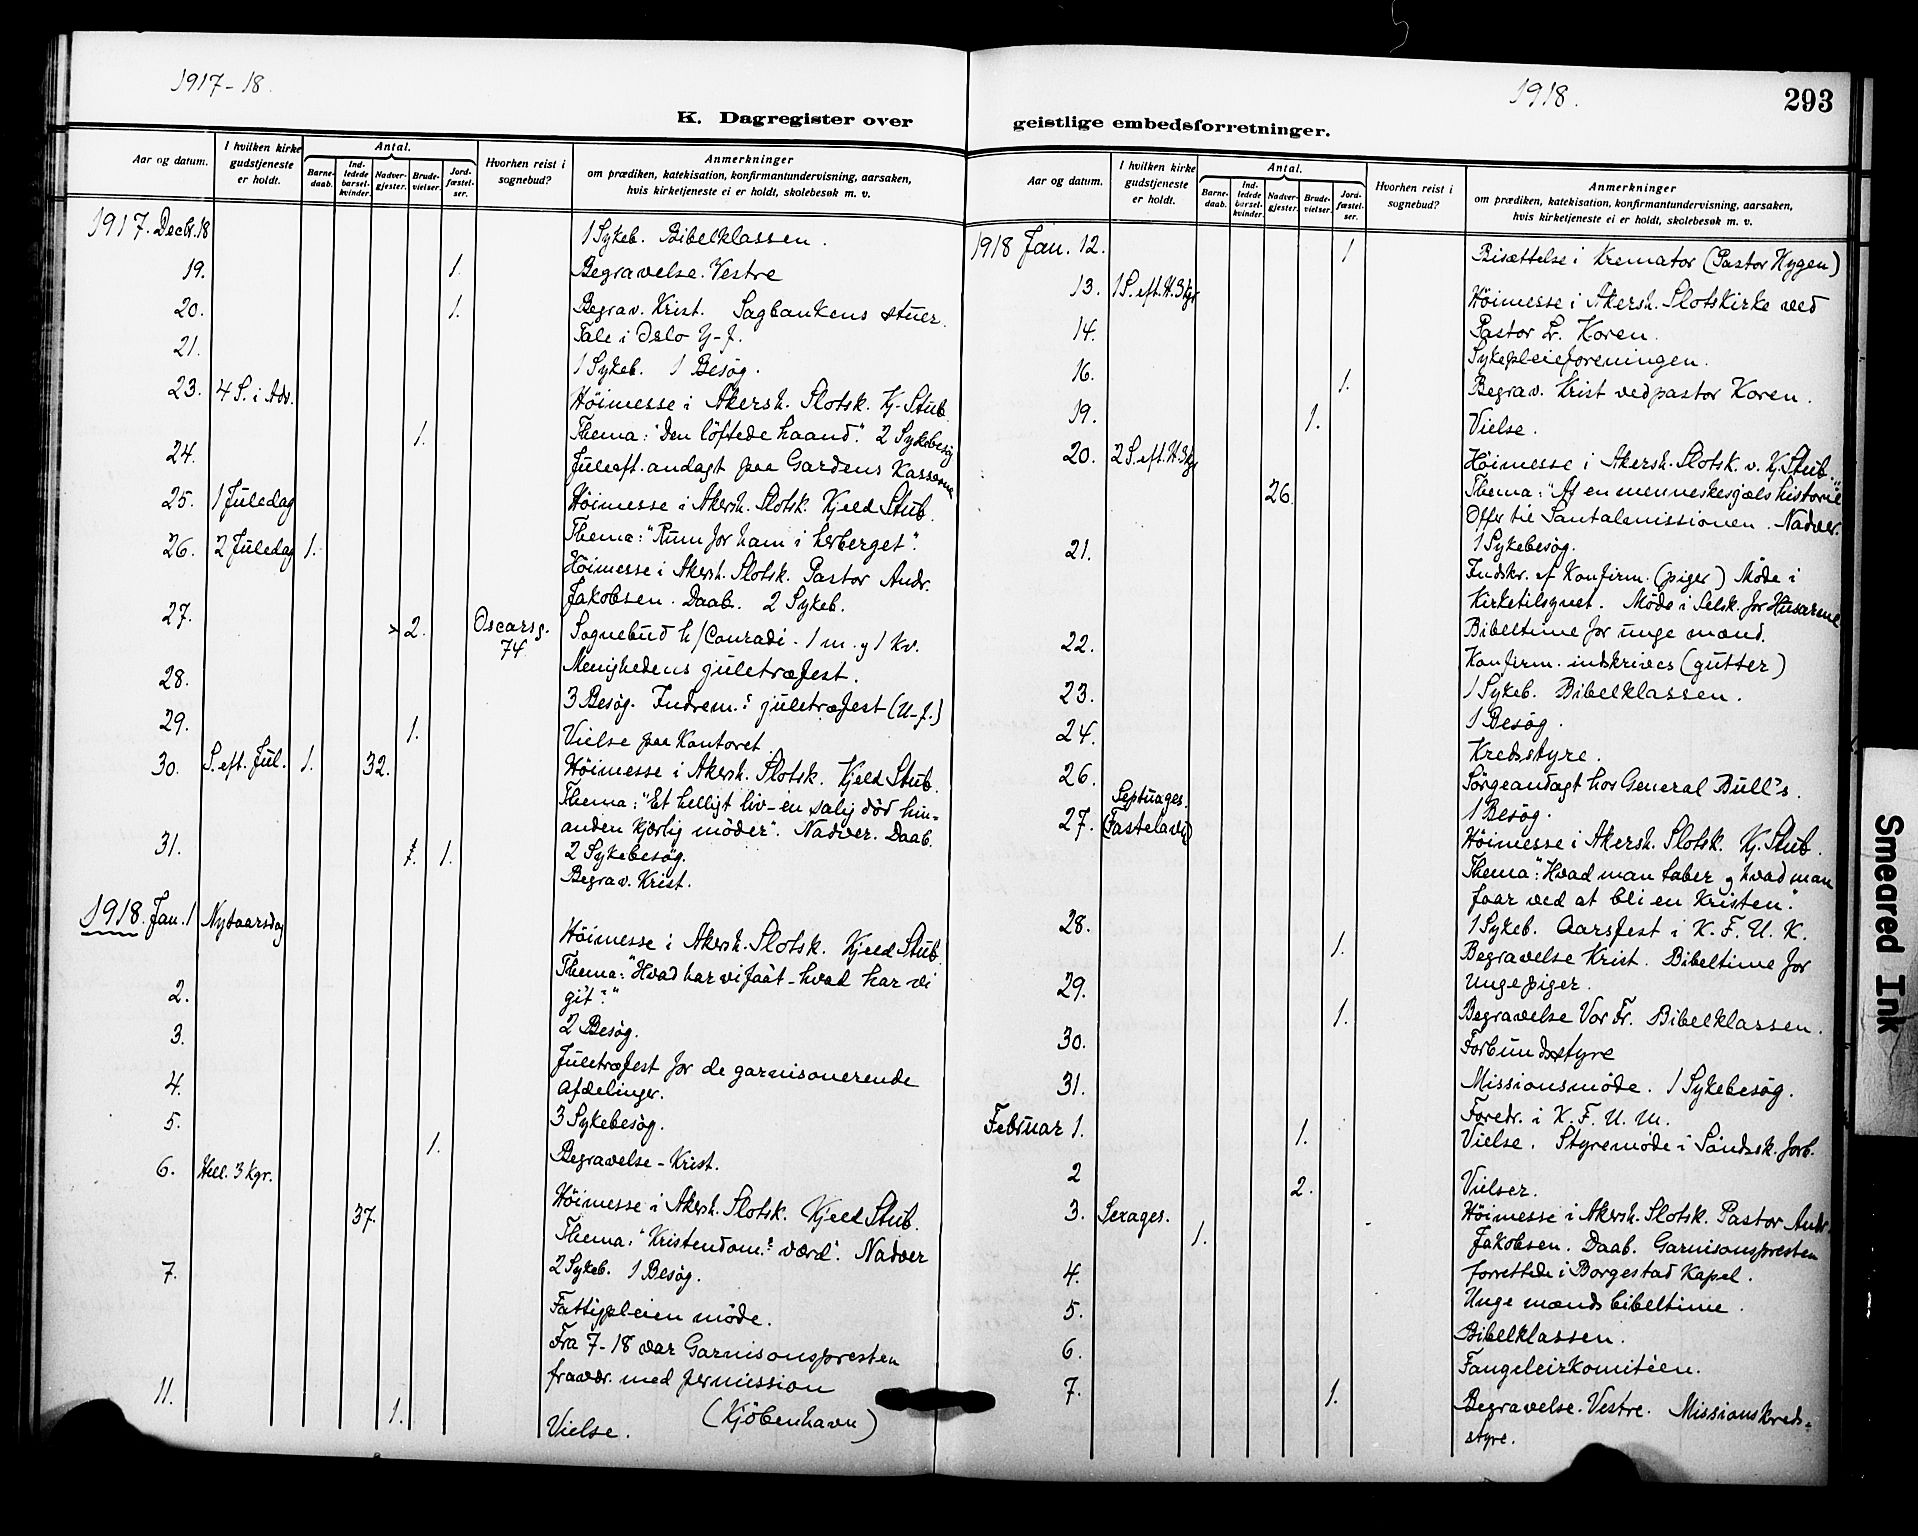 1917-18.
K. Dagregister over
Aar og datum. I hvilken kirke gudstjeneste er holdt. Antal. Barnedaab. Indledede barselkvinder. Nadvergjester. Brudevielser. Jordfæstelser. Hvorhen reist i sognebud? Anmerkninger
om prædiken, katekisation, konfirmantundervisning, aarsaken,
hvis kirketjeneste ei er holdt, skolebesøk m. v.
1917. Decbr. 18 1 Sykeb. Bibelklassen.
19. 1. Begravelse. Vestre
20. 1. Begrav. Krist. Sagbankens stuer.
Tale i Oslo Y-f.
21. 1 Sykeb. 1 Besøg.
23. 4 S. i Adv. Höimesse i Akersh. Slotsk. Kj. Stub
1. Thema: "Den löftede haand". 2 Sykebesög
24. Juleaft. andagt paa Gardens Kasserne
25. 1 Juledag Höimesse i Akersh. Slotsk. Kjeld Stub.
Thema: "Rum for ham i herberget".
26. 2 Juledag 1. Höimesse i Akersh. Slotsk. Pastor Andr.
Jakobsen. Daab. 2 Sykeb.
27. 2. Oscarsg. 74 Sognebud h/Conradi - 1 m. og 1 kv.
Menighedens juletræfest.
28. 3 Besøg. Indrem.s juletræfest (U-f.)
29. 1. Vielse paa Kontoret
30. S. eft. Jul. 1. 32. Höimesse i Akersh. Slotsk. Kjeld Stub.
Thema: "Et helligt liv - en salig död hin-
anden kjærlig möder". Nadver. Daab.
31. 1. 1. 2 Sykebesög.
Begrav. Krist.
1918. Jan. 1 Nytaarsdag Höimesse i Akersh. Slotsk. Kjeld Stub.
Thema: "Hvad har vi faat - hvad har vi
git?"
2. 2 Besøg.
3. Juletræfest for de garnisonerende
Afdelinger.
4. 3 Sykebesøg.
5. 1. Begravelse - Krist.
6. Hell. 3 Kgr. 37. Höimesse i Akersh. Slotsk. Kjeld Stub.
Thema: "Kristendom.s værd". Nadver
2 Sykeb. 1 Besøg.
7. Fattigpleien møde.
Fra 7-18 var Garnisonspresten
fravær. med permission
(Kjöbenhavn)
11. 1. Vielse.
1918.
293
geistlige embedsforretninger.
Aar og datum. I hvilken kirke gudstjeneste er holdt. Antal. Barnedaab. Indledede barselkvinder. Nadvergjester. Brudevielser. Jordfæstelser. Hvorhen reist i sognebud? Anmerkninger
om prædiken, katekisation, konfirmantundervisning, aarsaken,
hvis kirketjeneste ei er holdt, skolebesøk m. v.
1918 Jan. 12. 1 Bisættelse i Kremator (Pastor Hygen)
13. 1 S. eft. H. 3 kgr Höimesse i Akersh. Slotskirke ved
Pastor Koren.
14. Sykepleieforeningen.
16. 1. Begrav. Krist ved pastor Koren.
19. 1. Vielse.
20. 2 S. eft. H. 3 kg Höimesse i Akersh. Slotsk. v. Kj. Stub.
26. Thema: "Af en menneskesjæls historie"
Offer til Santalmissionen. Nadver.
1 Sykebesøg.
21. Indskr. af Konfirm. (piger) Møde i
Kirketilsynet. Møde i Selsk. for Husarme
Bibeltime for unge mænd.
22. Konfirm. indskrives (gutter)
1 Sykeb. Bibelklassen.
23. 1 Besøg.
24. Kredsstyre.
26. Sørgeandagt hos General Bull's.
1 Besøg.
27. Septuages. (Fastelavn) Höimesse i Akersh. Slotsk. Kj. Stub.
Thema: "Hvad man taber og hvad man
faar ved at bli en Kristen".
28. 1 Sykeb. Aarsfest i K. F. U. K.
1. Begravelse Krist. Bibeltime for
Unge piger.
29. 1. Begravelse Vor Fr. Bibelklassen.
30. Forbundsstyre
31. Missionsmøde. 1 Sykebesøg.
Foredr. i K. F. U. M.
Februar 1. 1. Vielse. Styremøde i Forb.
2 2. Vielser.
3. Sexages. 1. Höimesse i Akersh. Slotsk. Pastor Andr.
Jakobsen. Daab. Garnisonspresten
forrettede i Borgestad Kapel.
4. Unge mænds bibeltime.
5. Bibelklassen.
6. Fangeleirkomitéen.
7. 1. Begravelse. Vestre. Missionskreds-
styre.
Smeared Ink